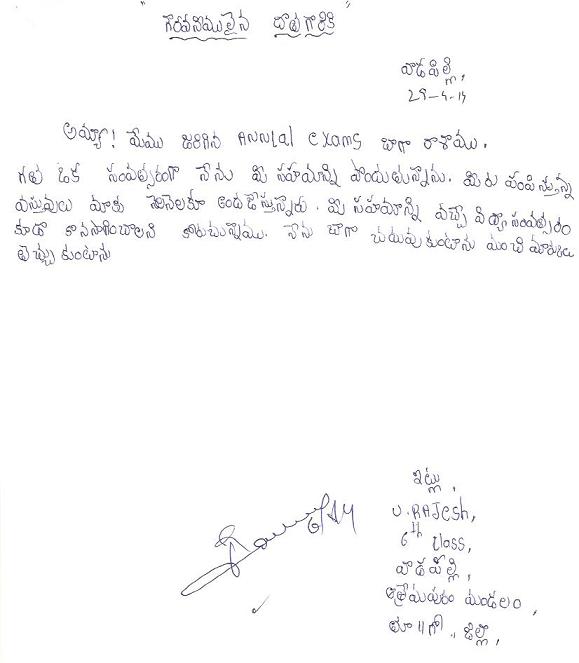 "గౌరవనీయులైన దాతగారికి"
వాడపల్లి,
29-4-14
అయ్యా! మేము జరిగిన Annual exams బాగా రాశాము.
గత ఒక సంవత్సరంగా నేను మీ సహయాన్ని పొందుతున్నాను. మీరు పంపిస్తున్న
వస్తువులు మాకు నెలనెలకూ అందజేస్తున్నారు. మీ సహయాన్ని వచ్చే విద్యా సంవత్సరం
కూడా కొనసాగించాలని కోరుచున్నాము. నేను బాగా చదువుకుంటాను మంచి మార్కులు
తెచ్చుకుంటాను
ఇట్లు,
U. RAJesh,
6th class,
వాడపల్లి,
ఆత్రేయపురం మండలం,
తూ॥గో॥, జిల్లా,